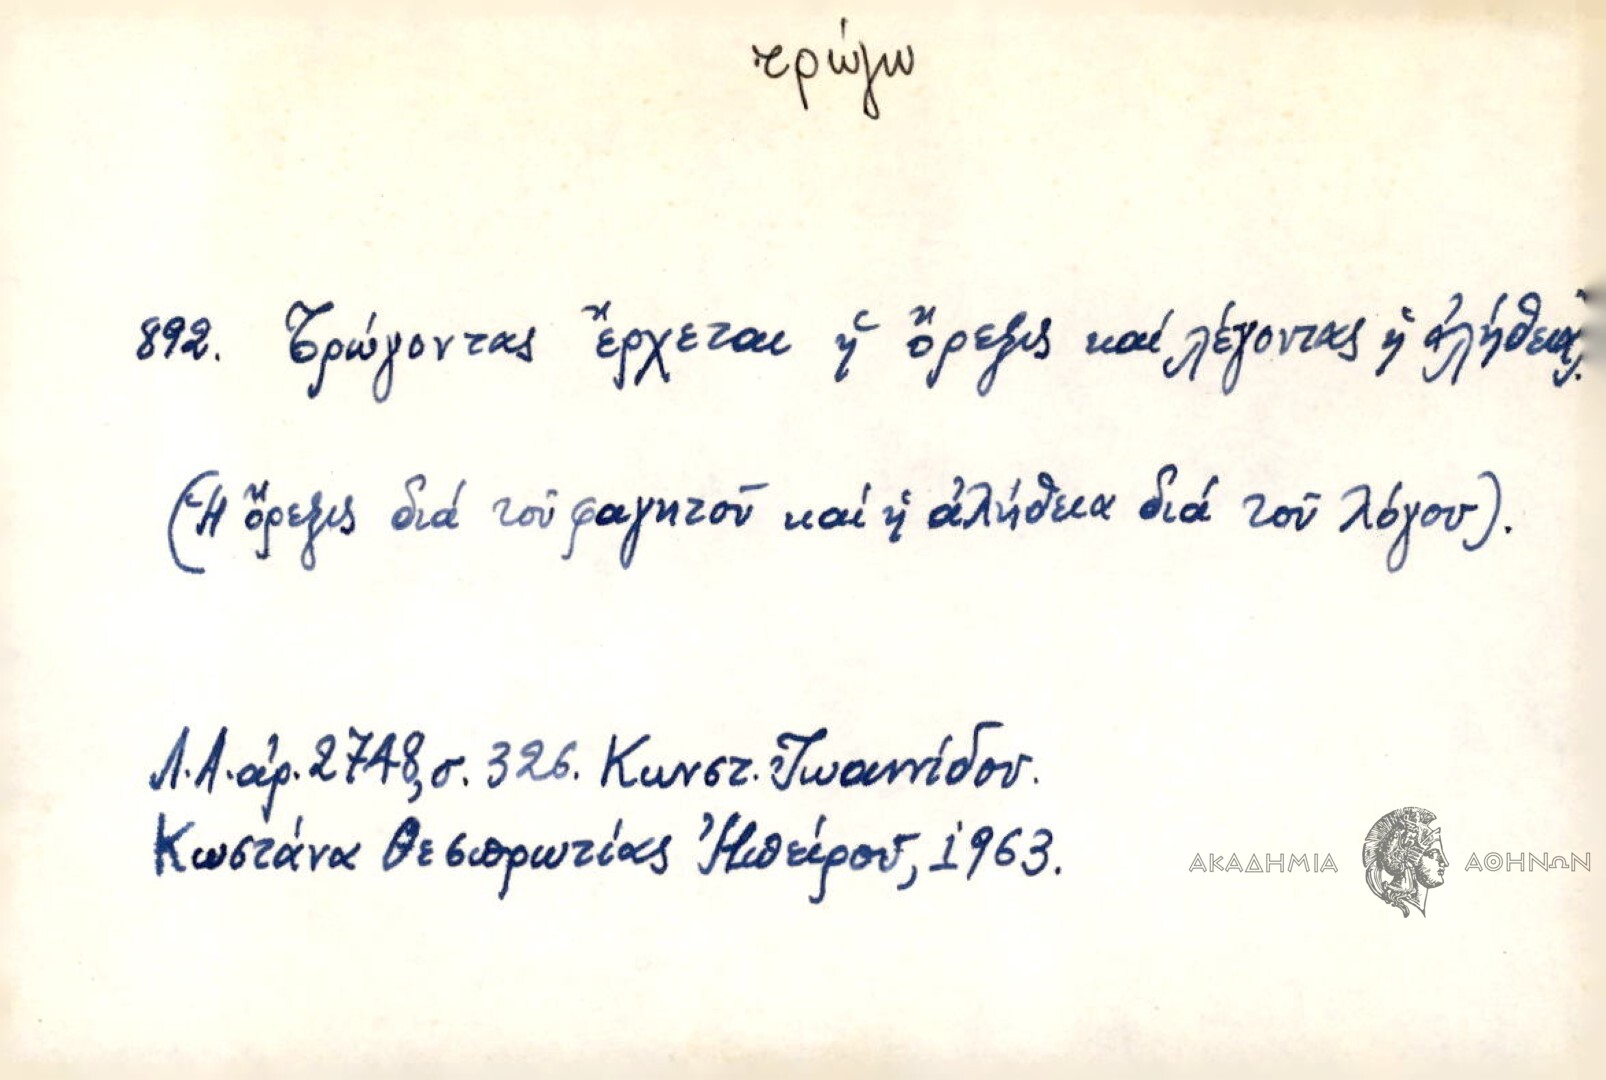 τρώγω
892. Τρώγοντας ἔρχεται ἡ ὄρεξις καί λέγοντας ἡ ἀλήθεια.
(Ἡ ὄρεξις διά τοῦ φαγητοῦ καί ἡ ἀλήθεια διά τοῦ λόγου).
Λ.Α. ἀρ. 2748, σ. 326. Κωνστ. Ἰωαννίδου.
Κωστάνα Θεσπρωτίας Ἠπείρου, 1963.
ΑΚΑΔΗΜΙΑ ΑΘΗΝΩΝ